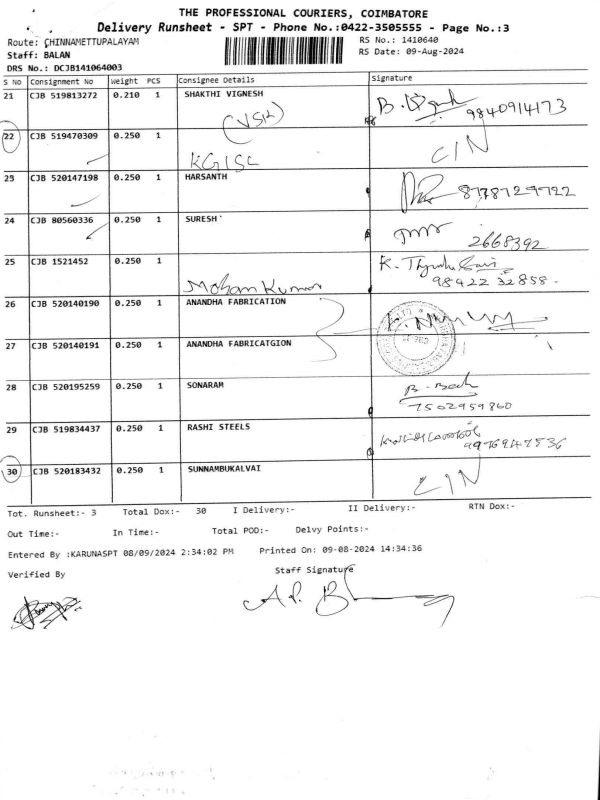 THE PROFESSIONAL COURIERS, COIMBATORE
Delivery Runsheet - SPT - Phone No.:0422-3505555 - Page No.:3
Route: CHINNAMETTUPALAYAM
RS No.: 1410640
Staff: BALAN
RS Date: 09-Aug-2024
DRS No.: DCJB141064003
S No Consignment No Weight PCS Consignee Details Signature
21 CJB 519813272 0.210 1 SHAKTHI VIGNESH
(VSK) 9840914173
22 CJB 519470309 0.250 1 CIN
KGISL
23 CJB 520147198 0.250 1 HARSANTH 8778729722
24 CJB 80560336 0.250 1 SURESH
2668392
25 CJB 1521452 0.250 1
Mohan Kumar 98422 32858
26 CJB 520140190 0.250 1 ANANDHA FABRICATION
27 CJB 520140191 0.250 1 ANANDHA FABRICATGION
28 CJB 520195259 0.250 1 SONARAM
7502959860
29 CJB 519834437 0.250 1 RASHI STEELS
30 CJB 520183432 0.250 1 SUNNAMBUKALVAI CIN
Tot. Runsheet:- 3 Total Dox:- 30 I Delivery:- II Delivery:- RTN Dox:-
Out Time:- In Time:- Total POD:- Delvy Points:-
Entered By :KARUNASPT 08/09/2024 2:34:02 PM Printed On: 09-08-2024 14:34:36
Verified By Staff Signature